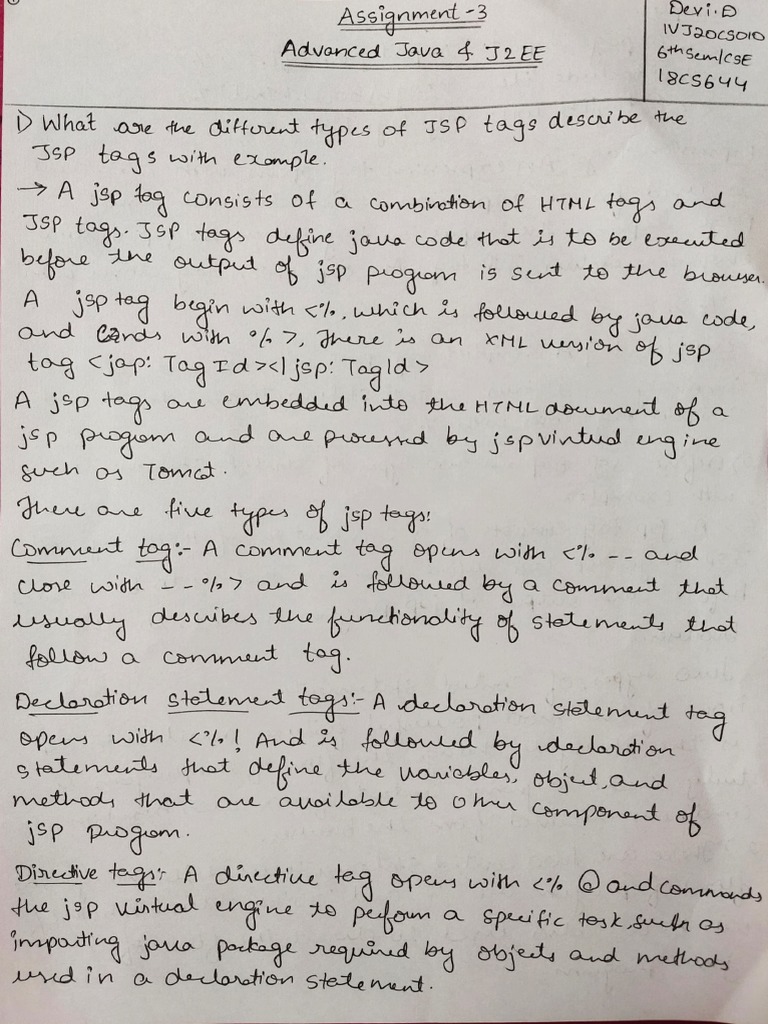 Assignment-3
Advanced Java & J2EE
Devi.D
1VJ20CS010
6th Sem/CSE
18CS644
1) What are the different types of JSP tags describe the
JSP tags with example.
→ A jsp tag consists of a combination of HTML tags and
JSP tags. JSP tags define java code that is to be executed
before the output of jsp program is sent to the browser.
A jsp tag begin with <%, which is followed by java code,
and ends with %>, There is an XML version of jsp
tag <jap: TagId></jsp: TagId>
A jsp tags are embedded into the HTML document of a
jsp program and are processed by jsp virtual engine
such as Tomcat.
There are five types of jsp tags:
Comment tag:- A comment tag opens with <% -- and
close with --%> and is followed by a comment that
usually describes the functionality of statements that
follow a comment tag.
Declaration statement tags:- A declaration statement tag
opens with <%! And is followed by declaration
statements that define the variables, object, and
methods that are available to other component of
jsp program.
Directive tags:- A directive tag opens with <% @ and commands
the jsp virtual engine to perform a specific task, such as
importing java package required by objects and methods
used in a declaration statement.